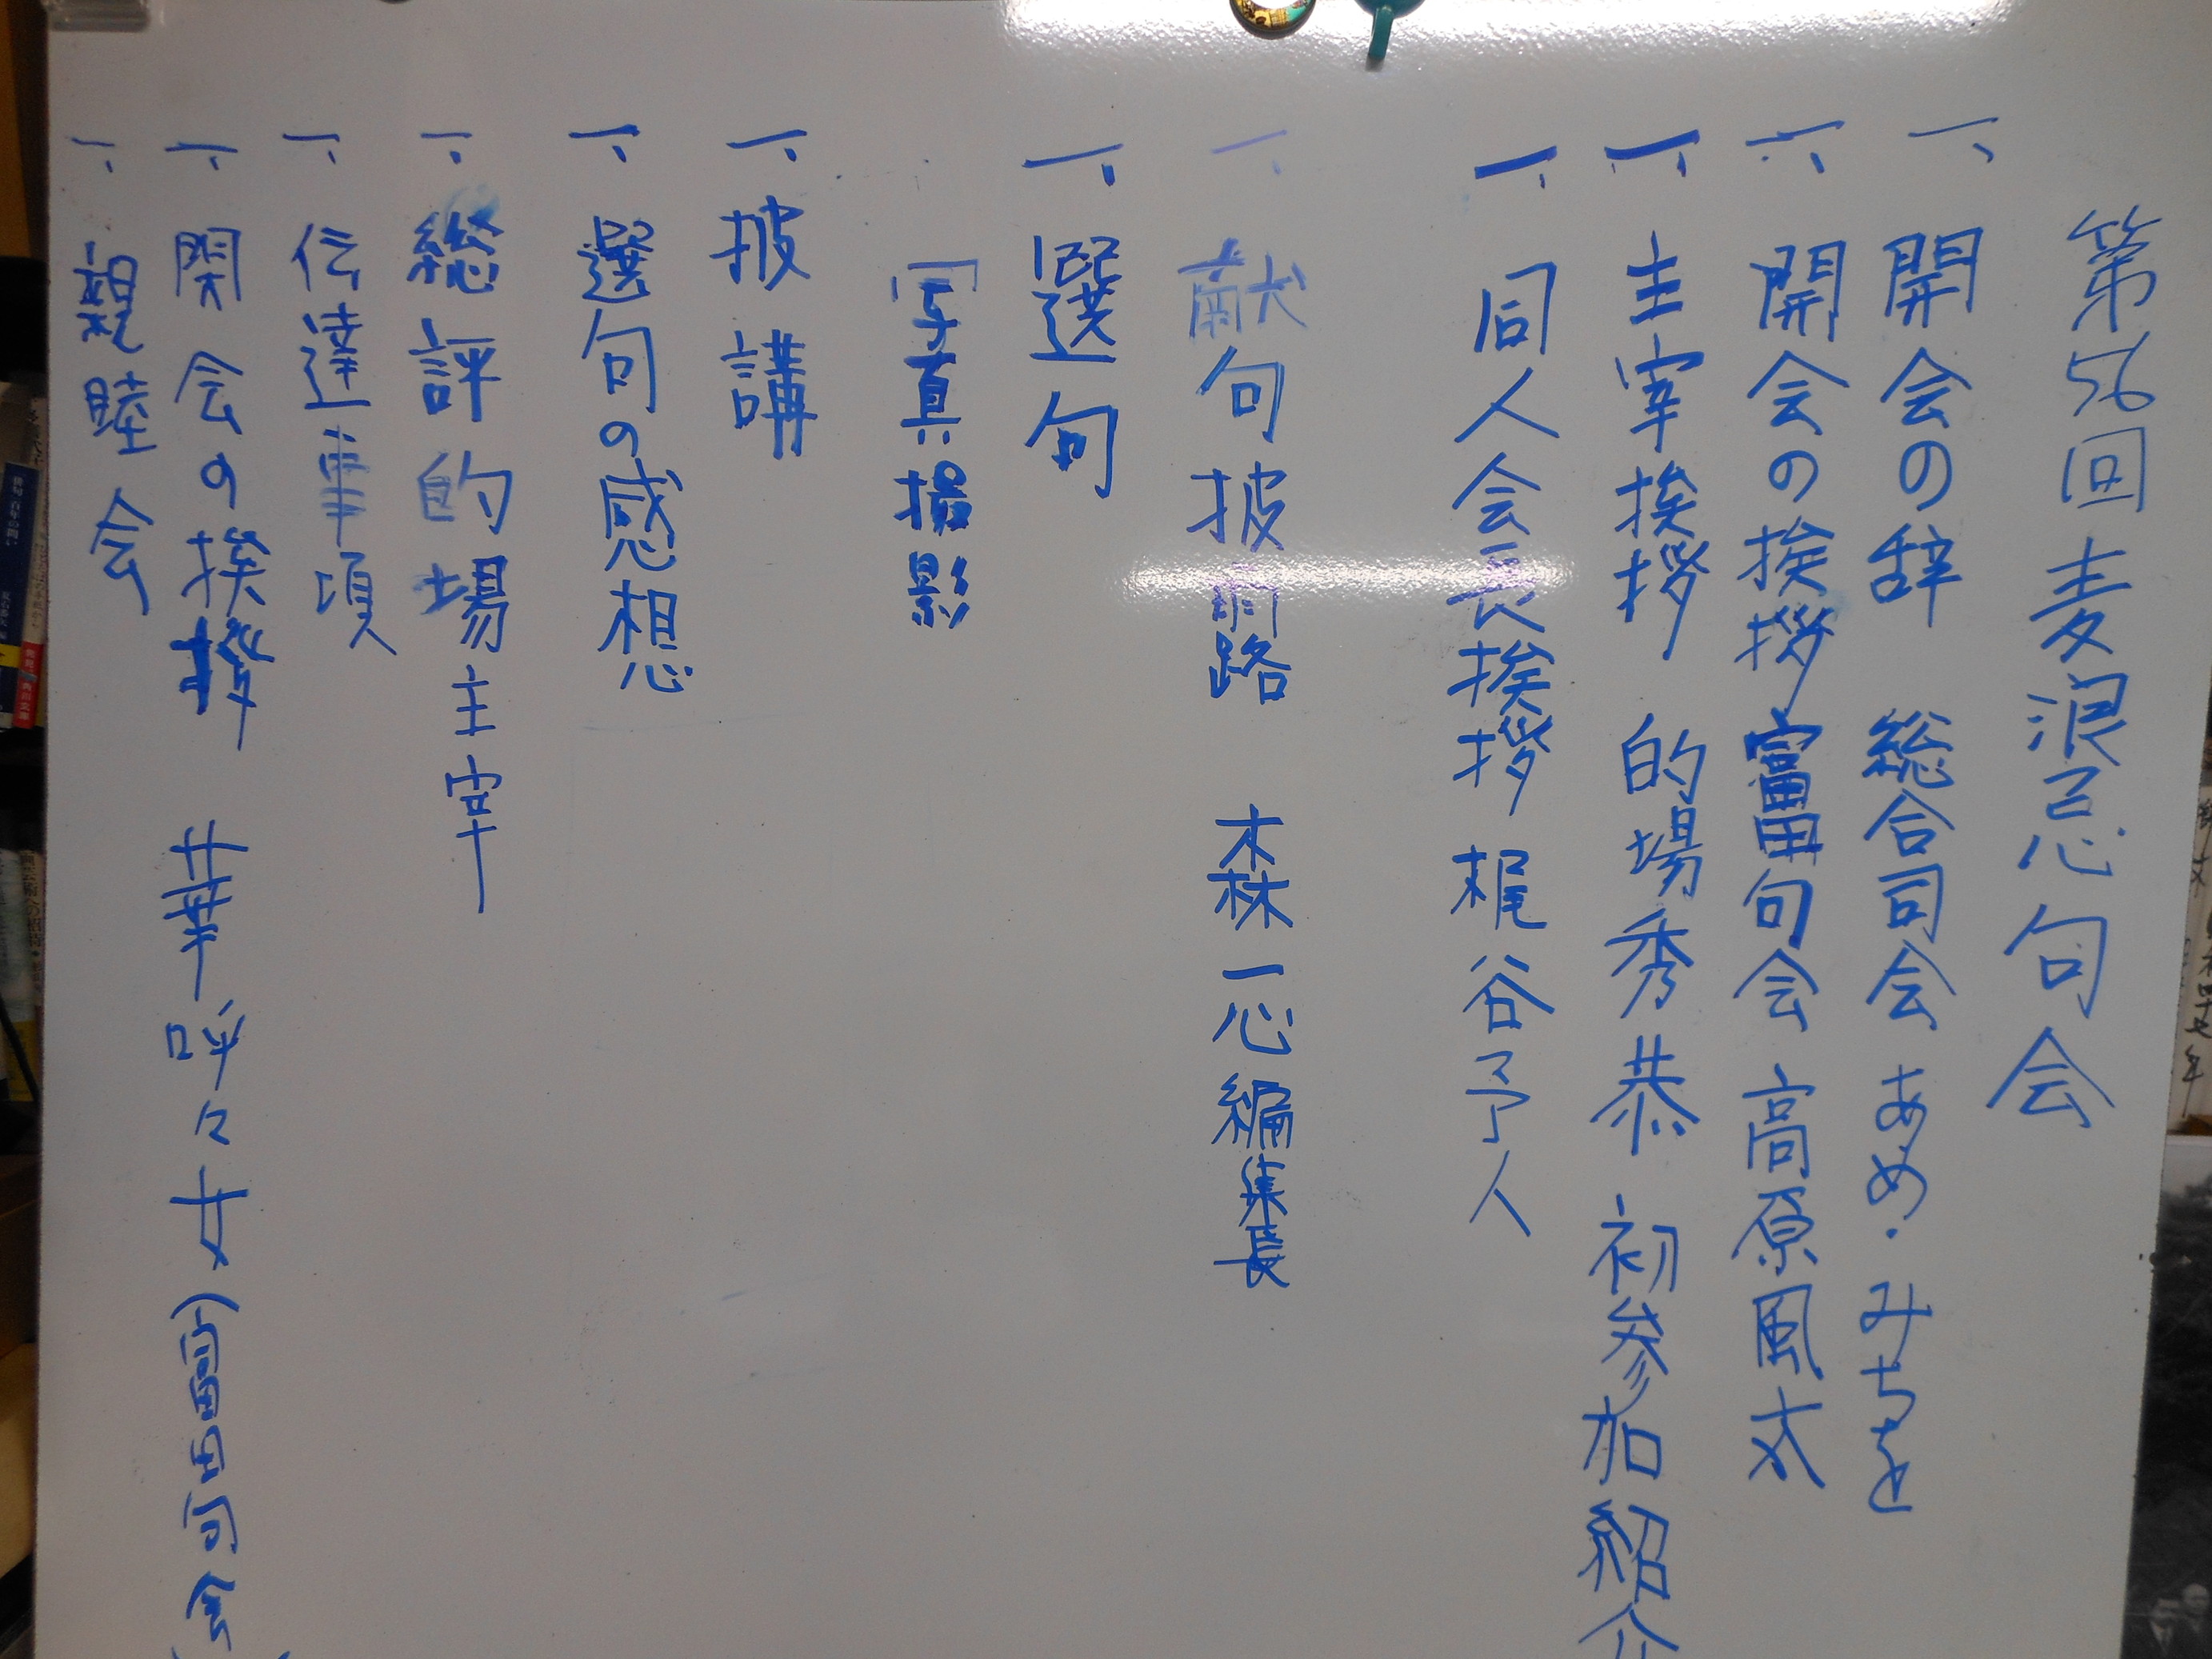 第56回麦浪忌句会
一、開会の辞 総合司会 あめ・みちを
一、開会の挨拶 富田句会 高原風太
一、主宰挨拶 的場秀恭 初参加紹介
一、同人会長挨拶 梶谷予人
一、献句披露 森一心編集長
一、選句
写真撮影
一、披講
一、選句の感想
一、総評 的場主宰
一、伝達事項
一、閉会の挨拶 華呼々女(富田句会)
一、親睦会